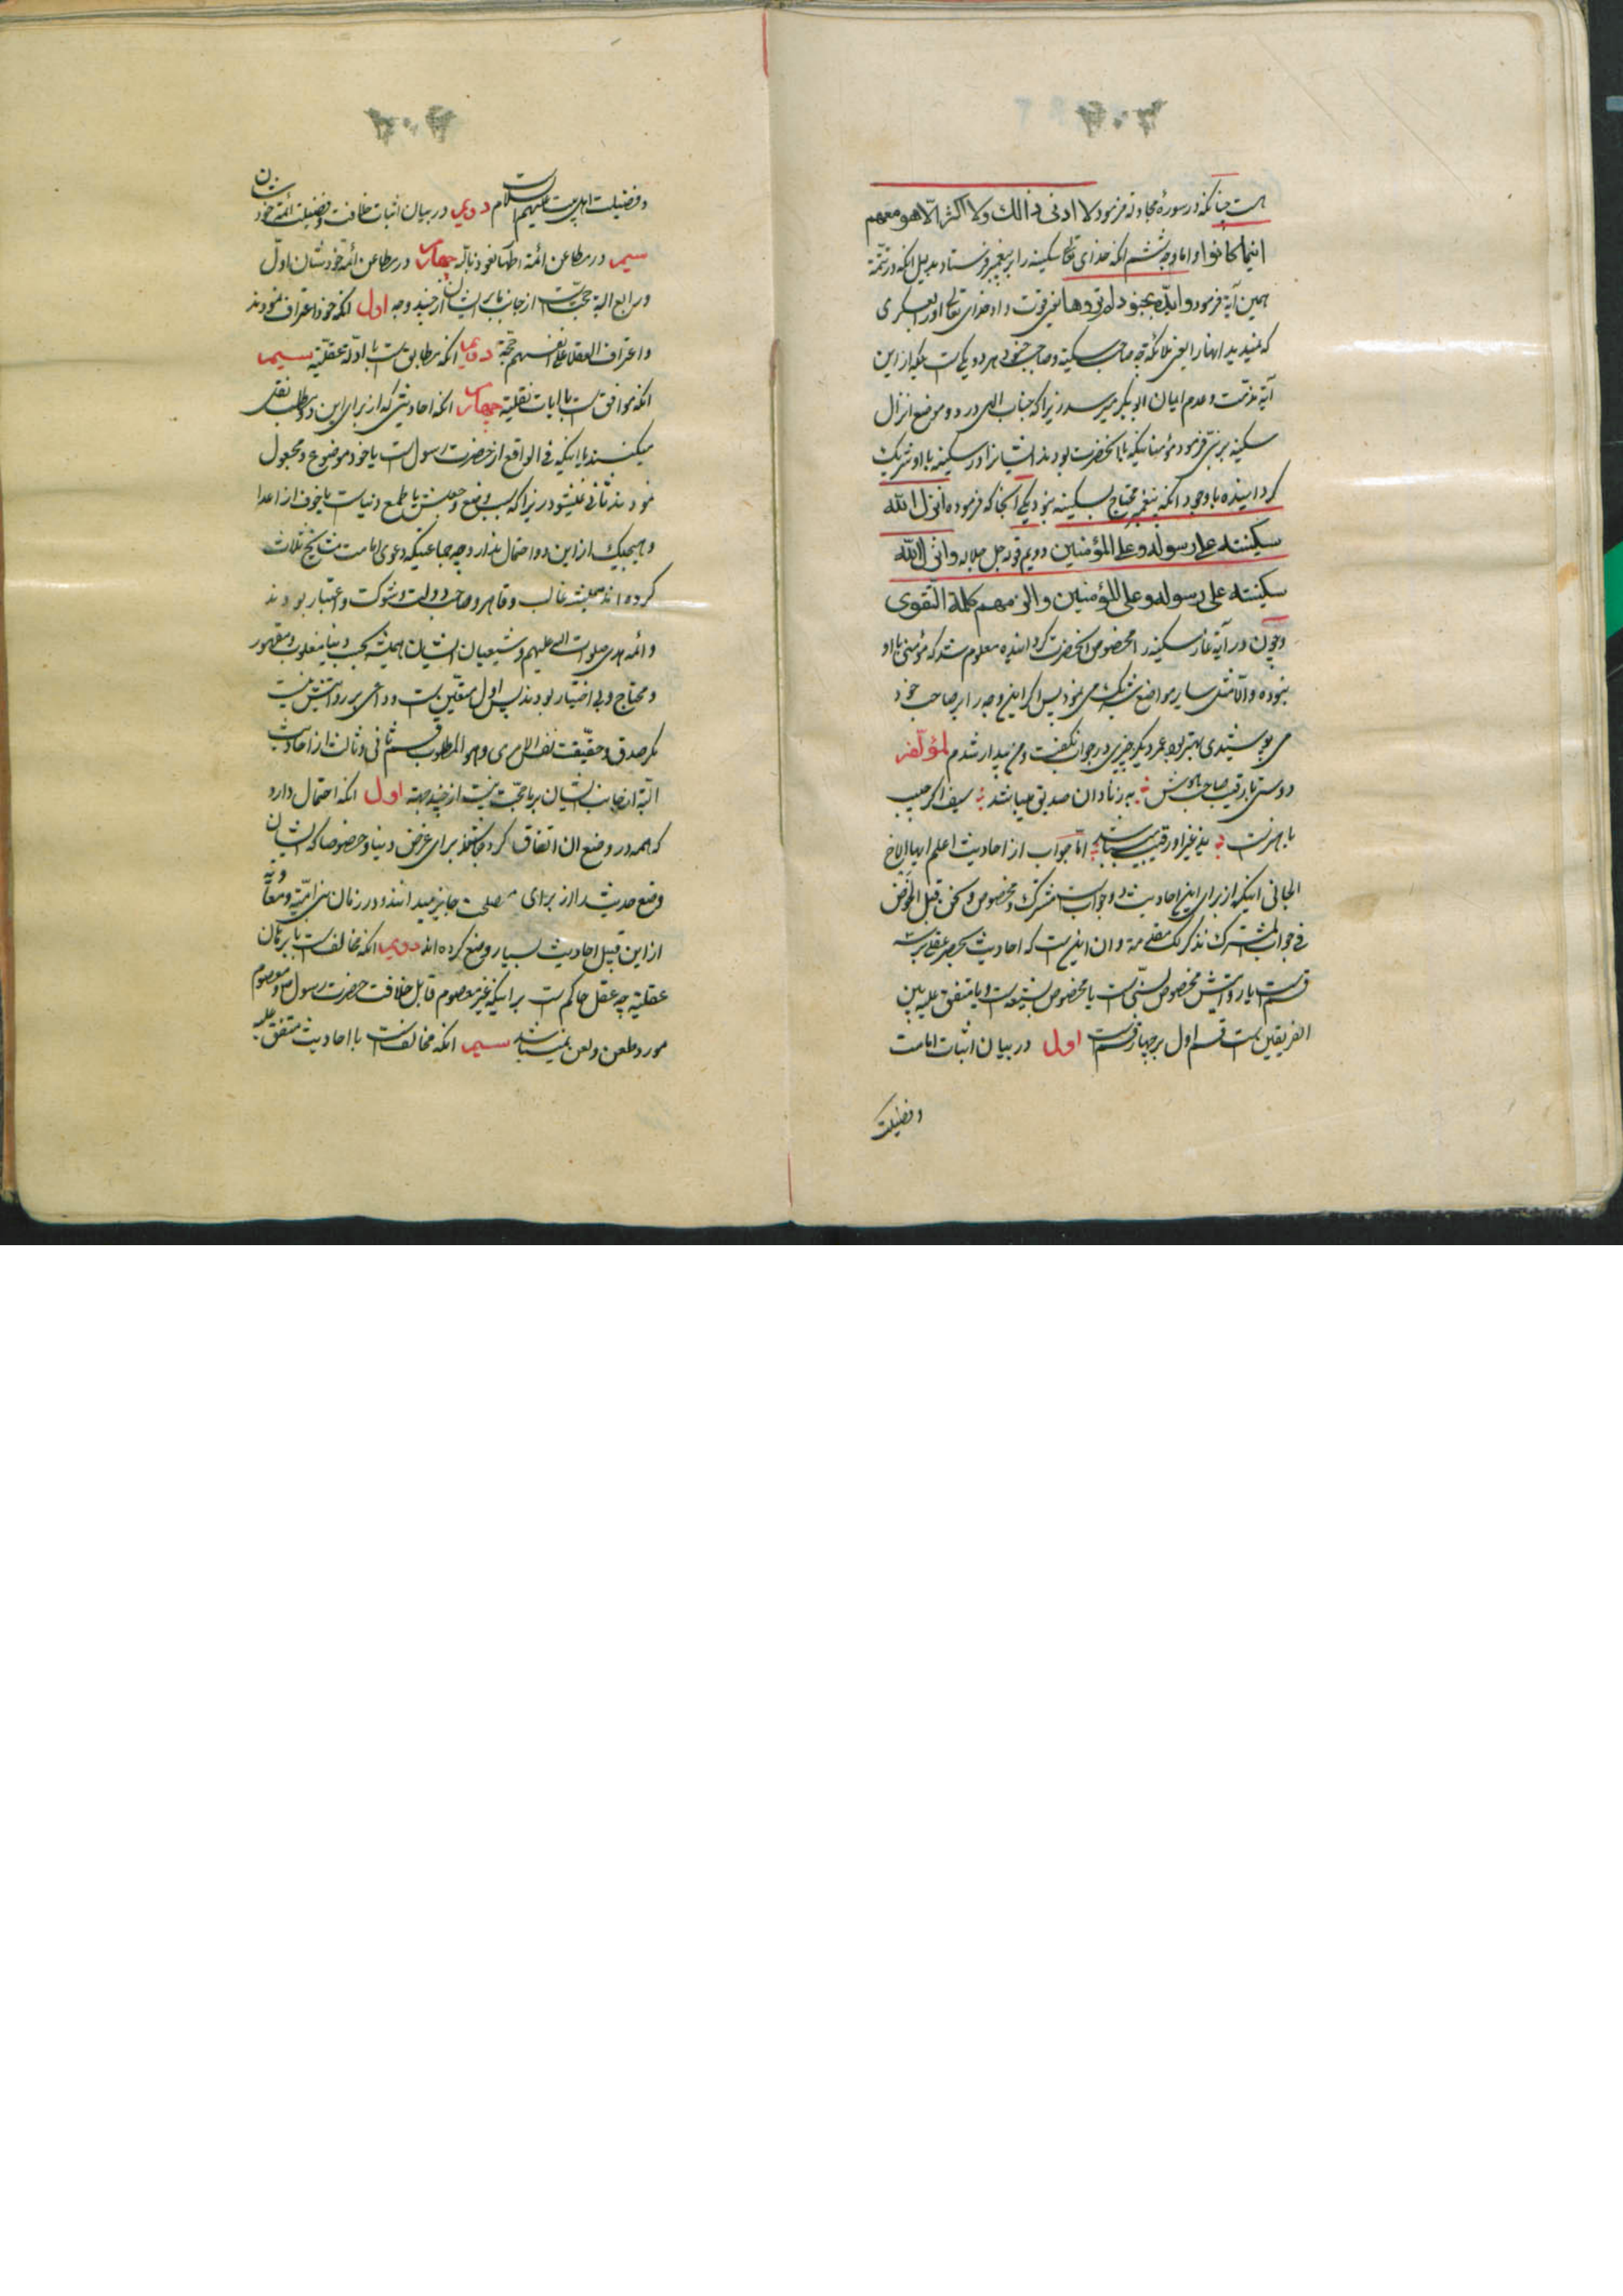 هست چنانکه در سورهٔ مجادله فرمود لا ادنی من ذالك ولا اکثر الّا هو معهم
اینما کانوا و اما وجه ششم انکه خدای تعا سکینه را بر پیغمبر فرستاد بدلیل انکه در تتمّهٔ
همین آیة فرمود و ایّده بجنود لم تروها یعنی قوت داد خدای تعالی او را بلشکری
که ندیدید انها را یعنی ملائکه چه صاحب سکینة و صاحب جنود هر دو یکیست بلکه از این
آیة مذمت و عدم ایمان ابو بکر میرسد زیرا که جناب الهی در دو موضع انزال
سکینه بر نبی فرمود مؤمنانیکه با انحضرت بودند ایشانرا در سکینه با او شریك
کردانیده با وجود انکه پیغمبر محتاج بسکینه نبود یکی آنجا که فرموده انزل الله
سکینته علی رسوله و علی المؤمنین دویم قوله جل جلاله وانزل الله
سکینته علی رسوله وعلی المؤمنین والزمهم کلمة التّقوی
و چون در آیة غار سکینه را مخصوص انحضرت کردانیده معلوم شد که مؤمنی با او
نبوده و الّا مثل سایر مواضع شریك می نمود پس اکر این وجه را بر صاحب خود
می پوشیدی بهتر بود عمر دیکر چیزی در جواب نکفت و من بیدار شدم لمؤلّفه
دوستی با رقیب صاحب هوش به ز نادان صدیق میباشد سیف اکر حبیب
با هنرست به ز غیر او رقیب میباشد امّا جواب از احادیث اعلم ایها الاخ
الجانی اینکه از برای این احادیث دو جوابست مشترك و مخصوص و لکن قبل الخوض
فی جواب المشترك نذکر لك مقدمة و ان اینست که احادیث بحصر عقلی بر سه
قسم است یا روایتش مخصوص سنّی است یا مخصوص شیعه است و یا متفق علیه بین
الفریقین است قسم اول بر چهار قسم است اول در بیان اثبات امامت
و فضیلت
و فضیلت اهل بیت علیهم السلام دویم در بیان اثبات خلافت و فضیلت ائمه خودشان
سیم در مطاعن ائمهٔ اطهار نعوذ بالله چهارم در مطاعن ائمهٔ خودشان اوّل
و رابع البة حجّتست از جانب ما بر ایشان از چند وجه اول انکه خود اعتراف نمودند
و اعتراف العقلا علی انفسهم حجّة دویم انکه مطابق است با ادلّهٔ عقلیّه سیم
انکه موافق است با ایات نقلیّه چهارم انکه احادیثی که از برای این دو مطلب نقل
میکنند یا اینکه فی الواقع از حضرت رسولست یا خود موضوع و مجعول
نمودند ثانی نمیشود زیرا که سبب وضع و جعلش یا طمع دنیاست یا خوف از اعدا
و هیچیك از این دو احتمال ندارد چه جماعتیکه دعوی امامت مشایخ ثلاث
کرده اند همیشه غالب و قاهر و صاحب دولت و شوکت و اعتبار بودند
و ائمه هدی صلوات الله علیهم و شیعیان ایشان همیشه بحسب دنیا مغلوب و مقهور
و محتاج و بی اختیار بودند پس اول متعیّن است و داعی بر روایتش نیست
مکر صدق و حقیقت نفس الامری و هو المطلوب قسم ثانی و ثالث از احادیث
البّة از جانب ایشان بر ما حجّت نیست از چند جهته اول انکه احتمال دارد
که همه در وضع ان اتفاق کرده باشند برای غرض دنیا و خصوصا که ایشان
وضع حدیث را از برای مصلحت جایز میدانند و در زمان بنی امیّه و معاویه
از این قبیل احادیث بسیار وضع کرده اند دویم انکه مخالفست با برهان
عقلیّه چه عقل حاکم است بر اینکه غیر معصوم قابل خلافت حضرت رسول ص و معصوم
مورد طعن و لعن نمیباشد سیم انکه مخالفست با احادیث متفق علیه